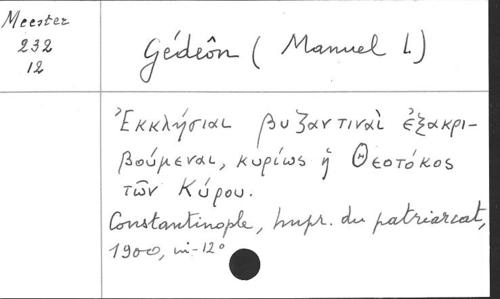 Meester
232
12
Gédéôn ( Manuel I.)
Ἐκκλήσιαι βυζαντιναὶ ἐξακρι-
βούμεναι, κυρίως ἡ Θεοτόκος
τῶν Κύρου.
Constantinople, Impr. du patriarcat,
1900, in-12°